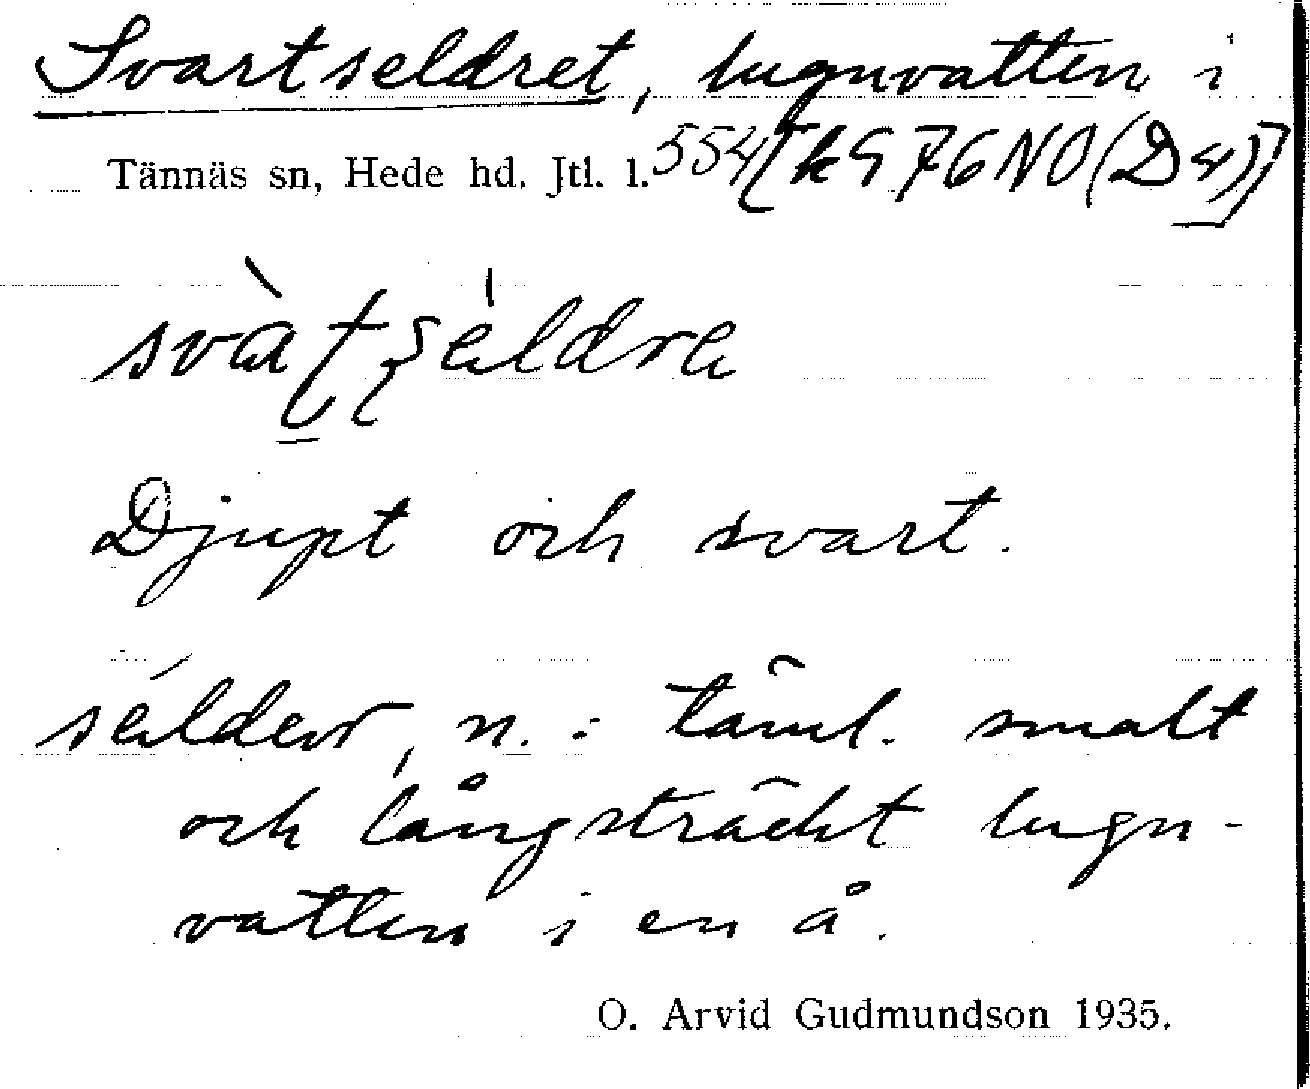 Svartseldret, lugnvatten i
Tännäs sn, Hede hd. Jtl. l. 554 [k976NO(D4)]
Djupt och svart.
sélder, n.: täml. smalt
och långsträckt lugn-
vatten i en å.
O. Arvid Gudmundson 1935.